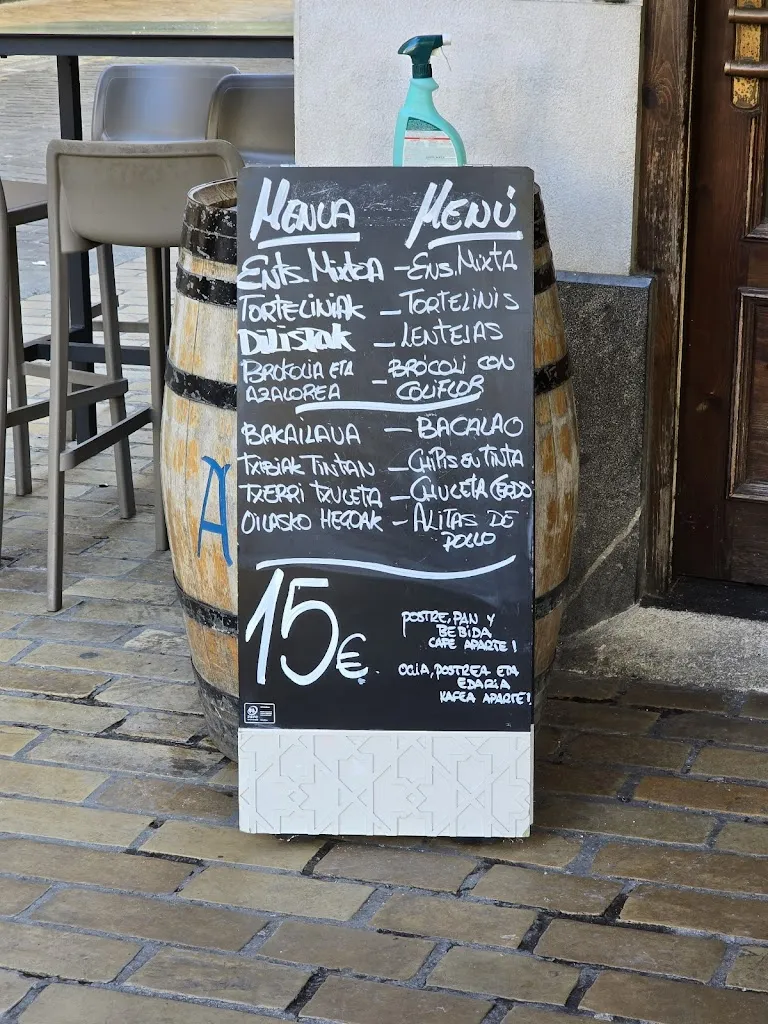 MENUA MENÚ
ENTS. MIXTOA – ENS. MIXTA
TORTELINIAK – TORTELINIS
DILISTAK – LENTEJAS
BROKOLIA ETA – BRÓCOLI CON
AZALOREA COLIFLOR
BAKAILAUA – BACALAO
TXIBIAK TINTAN – CHIPIS EN TINTA
TXERRI TXULETA – CHULETA CERDO
OILASKO HEGOAK – ALITAS DE
POLLO
15€
POSTRE, PAN Y
BEBIDA
CAFE APARTE!
OGIA, POSTREA ETA
EDARIA
KAFEA APARTE!
A